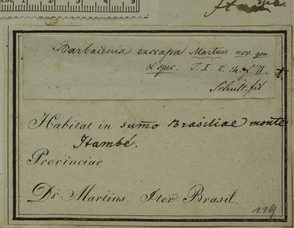 Barbacenia exscapa Martius nov. gen.
& spec. T. I. t. 14. f. II. †
Schult. fil.
Habitat in summo Brasiliae monte
Itambé.
Provinciae
Dr Martius Iter Brasil.